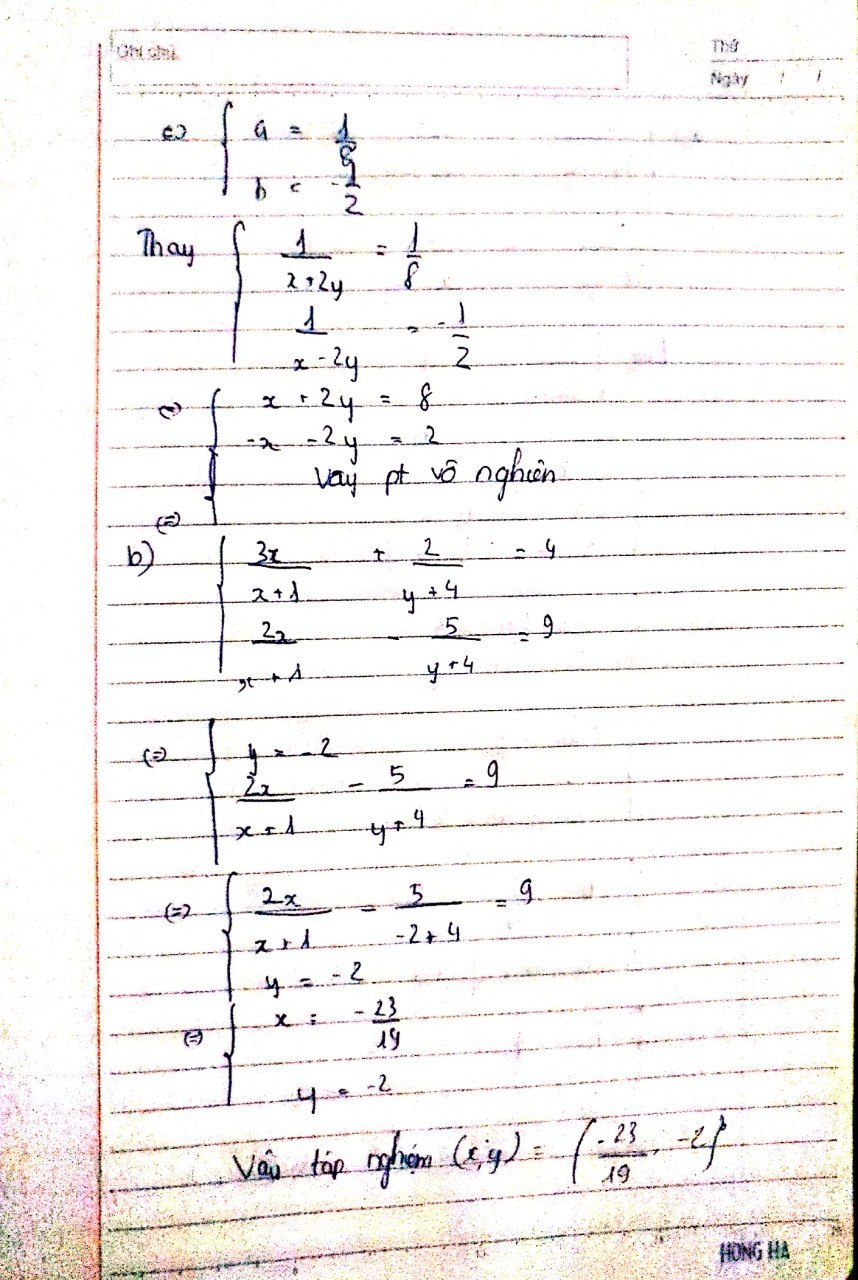 Ghi chú
Thứ
Ngày / /
<=> { a = 1/8
b = -1/2
Thay { 1/(x+2y) = 1/8
1/(x-2y) = -1/2
<=> { x + 2y = 8
-x - 2y = 2
Vậy pt vô nghiện
(=)
b) { 3x/(x+1) + 2/(y+4) = 4
2x/(x+1) - 5/(y+4) = 9
(=) { y = -2
2x/(x+1) - 5/(y+4) = 9
(=) { 2x/(x+1) - 5/(-2+4) = 9
y = -2
(=) { x = -23/19
y = -2
Vâu tâp nghiệm (x;y) = {-23/19, -2}
HONG HA